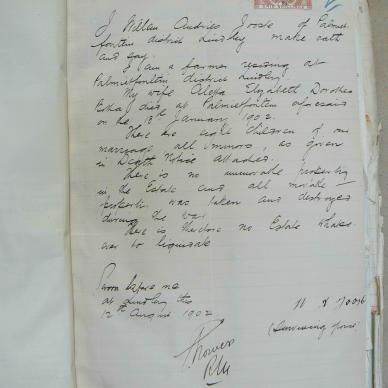 I Willem Andries Jooste of Palmiet-
fontein district Lindley make oath
and say:
I am a farmer residing at
Palmietfontein district Lindley
My wife Aletta Elizabeth Dorothea
died at Palmietfontein aforesaid
on the 13th January 1902.
There are eight children of our
marriage all minors, as given
in Death Notice attached.
There is no immovable property
in the Estate and all movable
property was taken and destroyed
during the war
There is therefore no Estate whats-
ever to liquidate
Sworn before me
at Lindley this
12th August 1902
W A Jooste
(Surviving spouse
RM